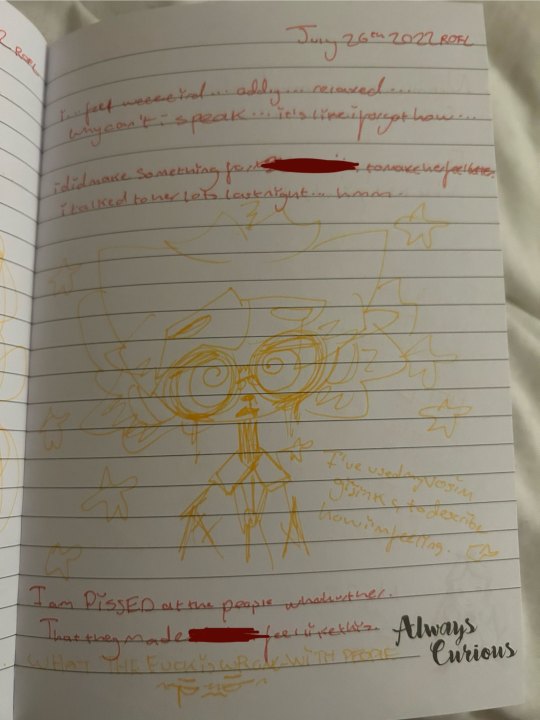 July 26th 2022 ROFL
i... feel weeeeird... oddly... relaxed...
why can't i speak... it's like i forgot how...
i did make something for to make her feel better.
i talked to her lots last night... hmm.
I've used my
to describe
how i'm feeling.
I am PISSED at the people who hurt her.
That they made feel like this.
WHAT THE FUCK IS WRONG WITH PEOPLE
Always
Curious